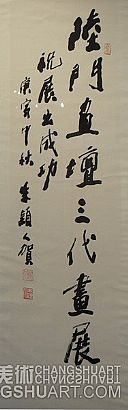 陸門畫壇三代畫展
祝展出成功
庚寅中秋 朱穎人賀
美術 CHANGSHUART
CHANGSHUART